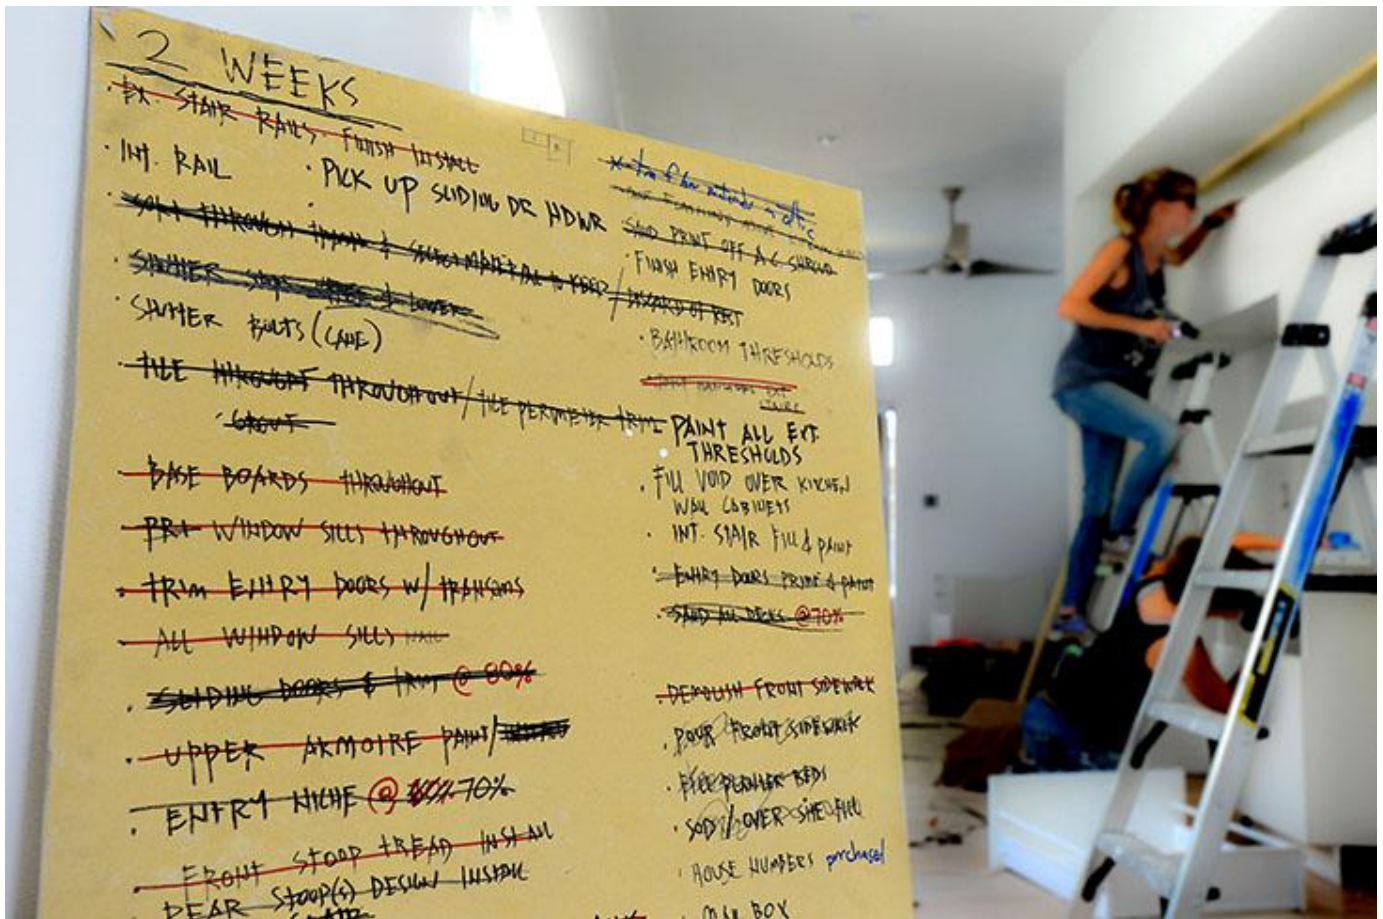 2 WEEKS
· EX. STAIR RAILS · FINISH INSTALL
· INT. RAIL
· PICK UP SLIDING DR HDWR
SORT THROUGH & SELECT MATERIAL TO KEEP / DISCARD OF REST
SHUTTER STOPS & LOWER
· SHUTTER BOLTS (CANE)
· TILE THROUGHOUT / TILE PERIMETER TRIM
· GROUT
· BASE BOARDS THROUGHOUT
· WINDOW SILLS THROUGHOUT
· TRIM ENTRY DOORS W/ TRANSOMS
· ALL WINDOW SILLS
· SLIDING DOORS & TRIM @ 80%
· UPPER ARMOIRE PAINT/
· ENTRY NICHE @ 70%
· FRONT STOOP TREAD INSTALL
REAR STOOP(S) DESIGN INSTALL
STAIR
SAND PAINT OFF A.C. SHROUD
· FINISH ENTRY DOORS
· BATHROOM THRESHOLDS
STAIRS
PAINT ALL EXT.
THRESHOLDS
· FILL VOID OVER KITCHEN
WALL CABINETS
· INT. STAIR FILL & PAINT
· ENTRY DOORS PRIME & PAINT
· SAND ALL DECKS @ 70%
· DEMOLISH FRONT SIDEWALK
· POUR FRONT SIDEWALK
· FILL PLANTER BEDS
· SOD / OVER SITE FILL
· HOUSE NUMBERS purchased
· MAIL BOX